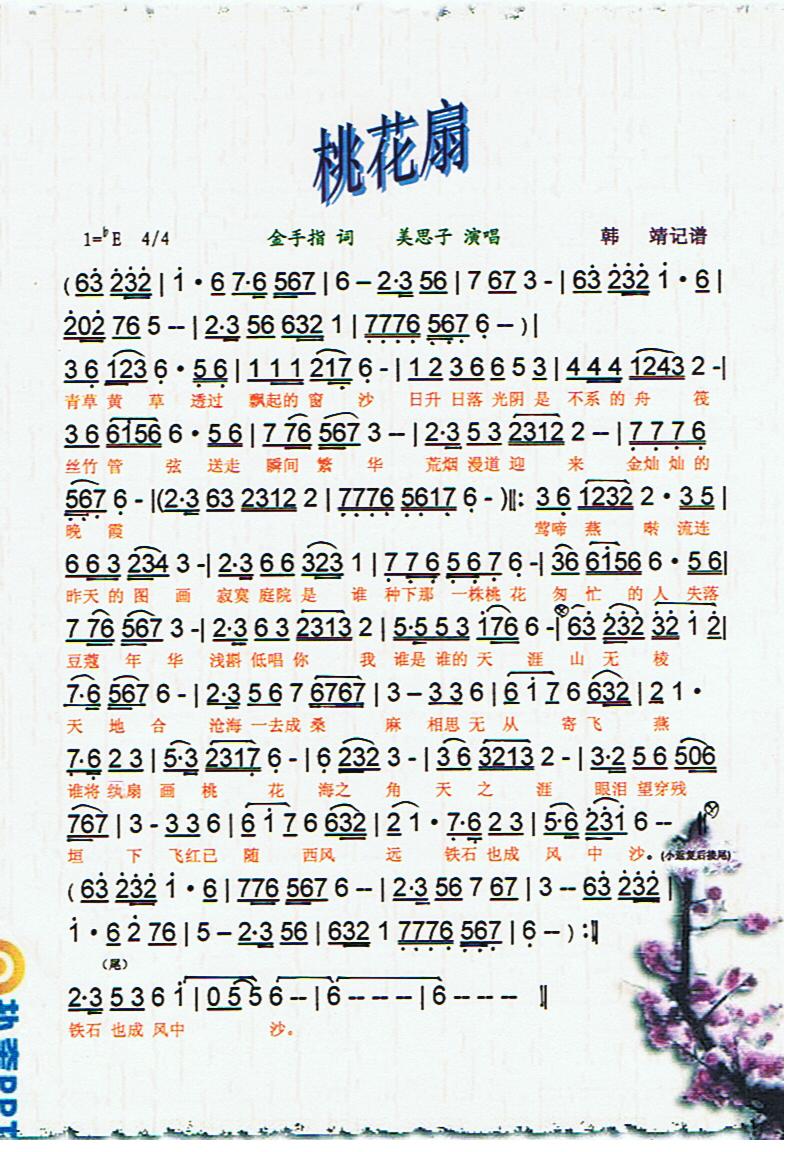 桃花扇
1=♭E 4/4 金手指 词 美思子 演唱 韩 靖记谱
(6̲3̲ 2̲3̲2̲ | 1 · 6 7·6 567 | 6 – 2·3 56 | 7 67 3 - | 63 232 1 · 6 |
202 76 5 -- | 2·3 56 632 1 | 7776 567 6 -- ) |
3 6 123 6 · 5 6 | 1 1 1 217 6 - | 1 2 3 6 6 5 3 | 4 4 4 1243 2 -|
青草 黄 草 透过 飘起的 窗 沙 日升 日落 光阴 是 不系 的 舟 筏
3 6 6156 6 · 5 6 | 7 76 567 3 -- | 2·3 5 3 2312 2 -- | 7 7 7 6
丝竹 管 弦 送走 瞬间 繁 华 荒烟 漫道 迎 来 金灿 灿 的
567 6 - |(2·3 63 2312 2 | 7776 5617 6 - )‖: 3 6 1232 2 · 3 5 |
晚 霞 莺啼 燕 啭 流连
6 6 3 234 3 -| 2·3 6 6 323 1 | 7 7 6 5 6 7 6 -| 36 6156 6 · 5 6|
昨天 的 图 画 寂寞 庭院 是 谁 种下那 一株桃 花 匆 忙 的 人 失落
7 76 567 3 -| 2·3 6 3 2313 2 | 5·5 5 3 176 6 -| 63 232 32 1 2|
豆蔻 年 华 浅斟 低唱 你 我 谁是 谁的 天 涯 山 无 棱
7·6 567 6 - | 2·3 5 6 7 6767 | 3 – 3 3 6 | 6 1 7 6 632 | 2 1 ·
天 地 合 沧海 一去成 桑 麻 相思 无 从 寄 飞 燕
7·6 2 3 | 5·3 2317 6 - | 6 232 3 - | 3 6 3213 2 - | 3·2 5 6 506
谁将 纨扇 画 桃 花 海之 角 天 之 涯 眼泪 望穿 残
767 | 3 - 3 3 6 | 6 1 7 6 632 | 2 1 · 7·6 2 3 | 5·6 231 6 --
垣 下 飞红已 随 西风 远 铁石 也成 风 中 沙。(小返复后接尾)
( 63 232 1 · 6 | 776 567 6 -- | 2·3 56 7 67 | 3 -- 63 232 |
1 · 6 2 76 | 5 – 2·3 56 | 632 1 7776 567 | 6 -- ) :‖
（尾）
2·3 5 3 6 1 | 0 5 5 6 -- | 6 -- -- | 6 -- -- ‖
铁石 也成 风中 沙。